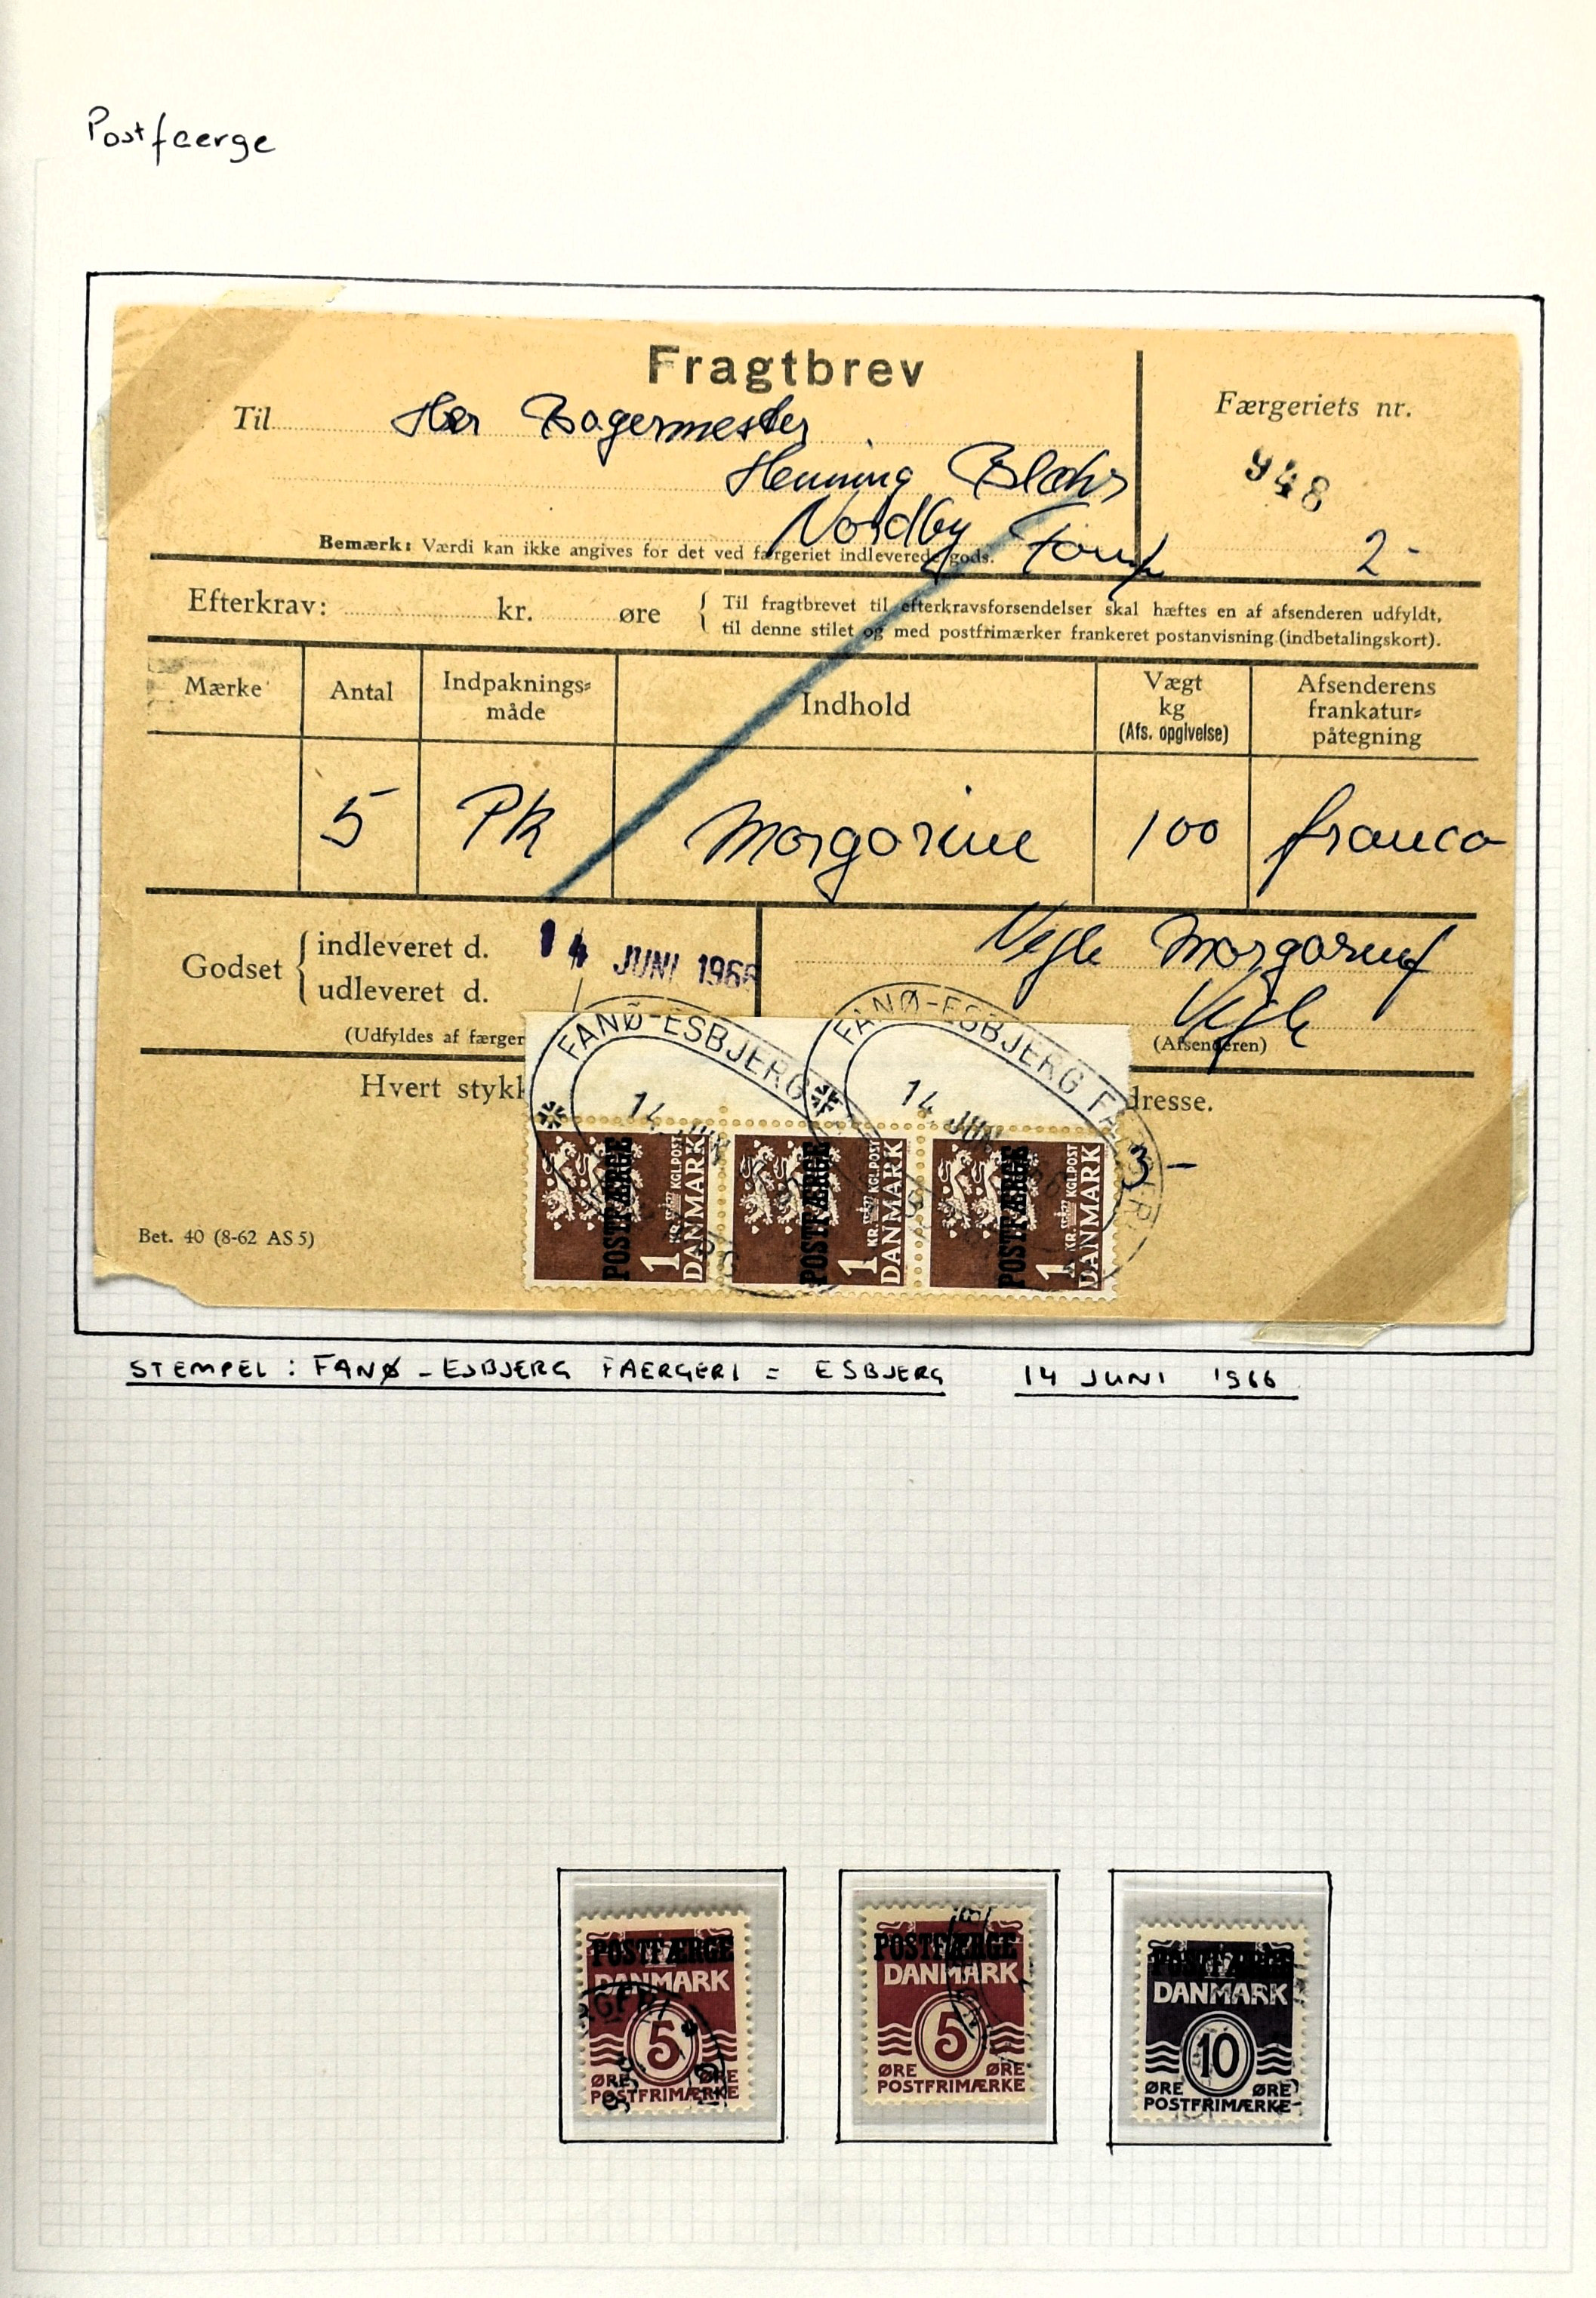 Postfaerge
Fragtbrev
Til Her Bagermester
Færgeriets nr.
Henning
948
Nordby Fanø
2-
Bemærk: Værdi kan ikke angives for det ved færgeriet indleverede gods.
Efterkrav: kr. øre
Til fragtbrevet til efterkravsforsendelser skal hæftes en af afsenderen udfyldt,
til denne stilet og med postfrimærker frankeret postanvisning (indbetalingskort).
Mærke
Antal
Indpaknings-
måde
Indhold
Vægt
kg
(Afs. opgivelse)
Afsenderens
frankatur-
påtegning
5 Pk Margarine 100 franco
Godset
indleveret d.
udleveret d.
14 JUNI 1966
Vejle Margarinef
Vejle
(Udfyldes af færger
(Afsenderen)
Hvert stykk
dresse.
FANØ-ESBJERG
14 JUN
FANØ-ESBJERG FÆ
14 JUN
3-
POSTFÆRGE
1 KR. KGL.POST
DANMARK
POSTFÆRGE
1 KR. KGL.POST
DANMARK
POSTFÆRGE
1 KR. KGL.POST
DANMARK
Bet. 40 (8-62 AS 5)
STEMPEL : FANØ - ESBJERG FAERGERI = ESBJERG 14 JUNI 1966
POSTFÆRGE
DANMARK
5
ØRE ØRE
POSTFRIMÆRKE
POSTFÆRGE
DANMARK
5
ØRE ØRE
POSTFRIMÆRKE
POSTFÆRGE
DANMARK
10
ØRE ØRE
POSTFRIMÆRKE